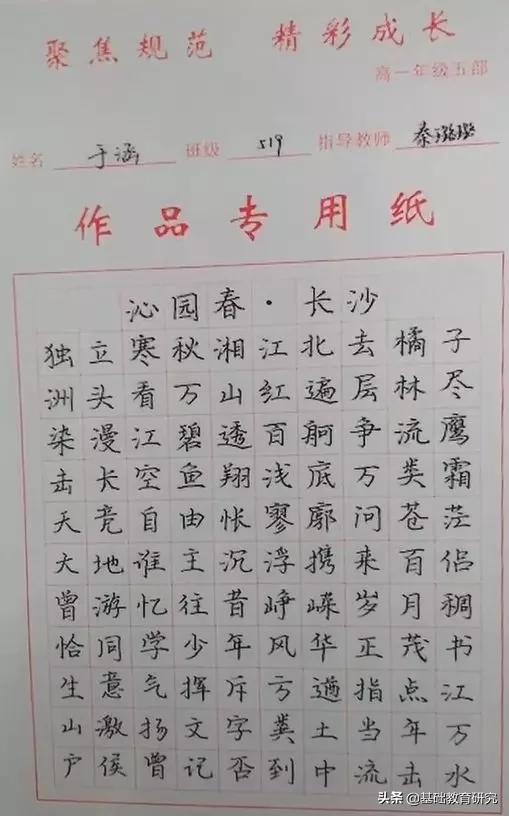 聚焦规范 精彩成长
高一年级五部
姓名 于涵 班级 519 指导教师 秦璐璐
作品专用纸
沁园春·长沙
独立寒秋湘江北去橘子
洲头看万山红遍层林尽
染漫江碧透百舸争流鹰
击长空鱼翔浅底万类霜
天竞自由怅寥廓问苍茫
大地谁主沉浮携来百侣
曾游忆往昔峥嵘岁月稠
恰同学少年风华正茂书
生意气挥斥方遒指点江
山激扬文字粪土当年万
户侯曾记否到中流击水
头条 @基础教育研究